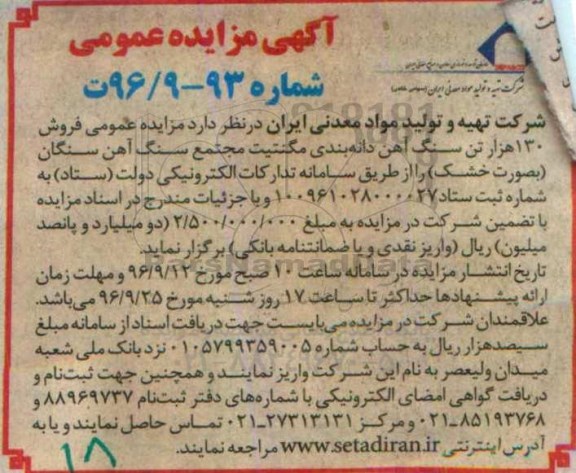 آگهی مزایده عمومی
شماره ۹۳-۹۶/۹ت
شرکت تهیه و تولید مواد معدنی ایران
شرکت تهیه و تولید مواد معدنی ایران درنظر دارد مزایده عمومی فروش
۱۳۰هزار تن سنگ آهن دانه‌بندی مگنتیت مجتمع سنگ آهن سنگان
(بصورت خشک) را از طریق سامانه تدارکات الکترونیکی دولت (ستاد) به
شماره ثبت ستاد ۱۰۰۹۶۱۰۲۸۰۰۰۰۲۷ و با جزئیات مندرج در اسناد مزایده
با تضمین شرکت در مزایده به مبلغ ۲/۵۰۰/۰۰۰/۰۰۰ (دو میلیارد و پانصد
میلیون) ریال (واریز نقدی و یا ضمانتنامه بانکی) برگزار نماید.
تاریخ انتشار مزایده در سامانه ساعت ۱۰ صبح مورخ ۹۶/۹/۱۲ و مهلت زمان
ارائه پیشنهادها حداکثر تا ساعت ۱۷ روز شنبه مورخ ۹۶/۹/۲۵ می‌باشد.
علاقمندان شرکت در مزایده می‌بایست جهت دریافت اسناد از سامانه مبلغ
سیصدهزار ریال به حساب شماره ۰۱۰۵۷۹۹۳۵۹۰۰۵ نزد بانک ملی شعبه
میدان ولیعصر به نام این شرکت واریز نمایند و همچنین جهت ثبت‌نام و
دریافت گواهی امضای الکترونیکی با شماره‌های دفتر ثبت‌نام ۸۸۹۶۹۷۳۷ و
۰۲۱-۸۵۱۹۳۷۶۸ و مرکز ۰۲۱-۲۷۳۱۳۱۳۱ تماس حاصل نمایند و یا به
آدرس اینترنتی www.setadiran.ir مراجعه نمایند.
۱۸